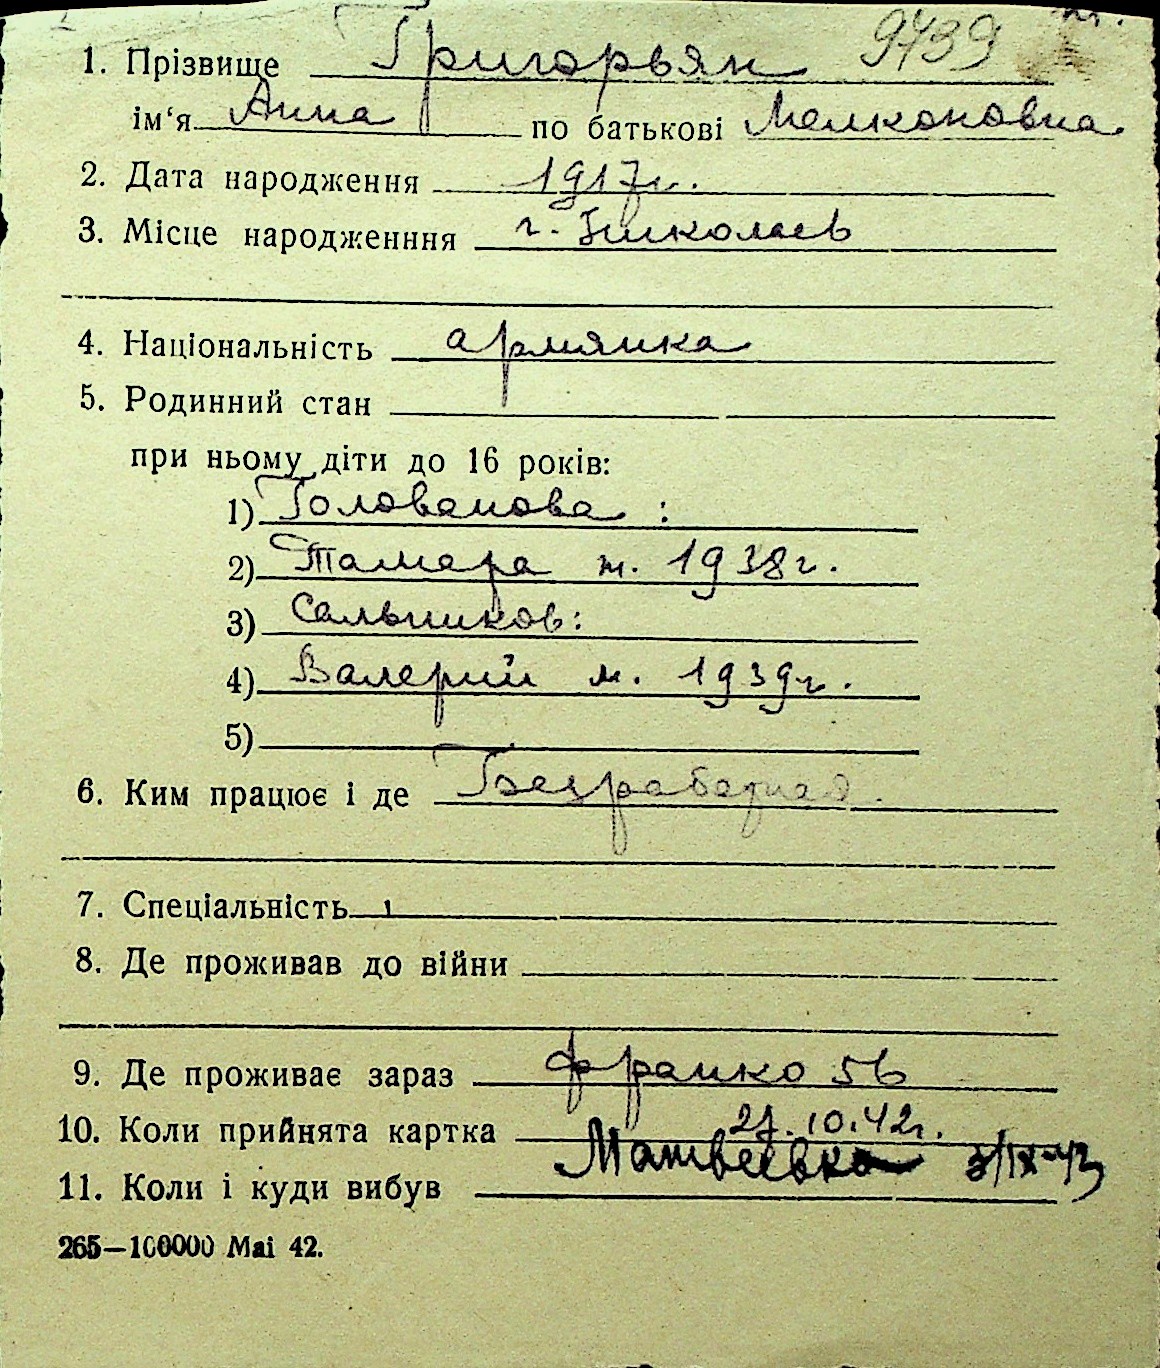 1. Прізвище Григорьян 9739
ім'я Анна по батькові Мелконовна
2. Дата народження 1917г.
3. Місце народженння г. Николаев
4. Національність армянка
5. Родинний стан
при ньому діти до 16 років:
1) Голованова :
2) Тамара ж. 1938г.
3) Сальников:
4) Валерий м. 1939г.
5)
6. Ким працює і де Безработная.
7. Спеціальність
8. Де проживав до війни
9. Де проживає зараз Франко 56
10. Коли прийнята картка 27.10.42г.
11. Коли і куди вибув Матвеевка 3/IX-43
265—100000 Mai 42.